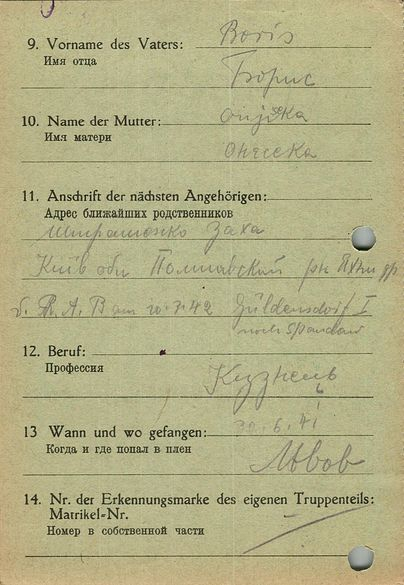 9. Vorname des Vaters: Boris
Имя отца
Борис
10. Name der Mutter:
Имя матери
11. Anschrift der nächsten Angehörigen:
Адрес ближайших родственников
Київ обл
am 10.7.42 Güldendorf I
nach Spandau
12. Beruf:
Профессия
Кузнець
13 Wann und wo gefangen: 30.6.41
Когда и где попал в плен
Львов
14. Nr. der Erkennungsmarke des eigenen Truppenteils:
Matrikel-Nr.
Номер в собственной части